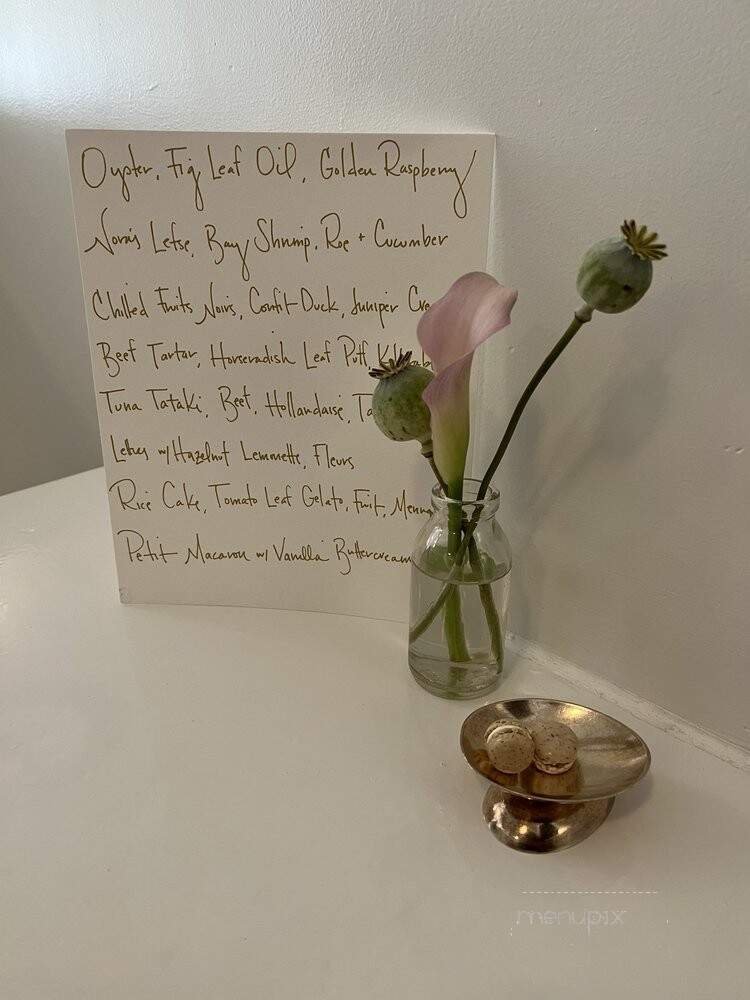 Oyster, Fig Leaf Oil, Golden Raspberry
Nora's Lefse, Bay Shrimp, Roe + Cucumber
Chilled Fruits Noirs, Confit Duck, Juniper Cre
Beef Tartar, Horseradish Leaf Puff,
Tuna Tataki, Beet, Hollandaise, Ta
w/ Hazelnut Lemmette, Fleurs
Rice Cake, Tomato Leaf Gelato, Fruit,
Petit Macaron w/ Vanilla Buttercream
menupix